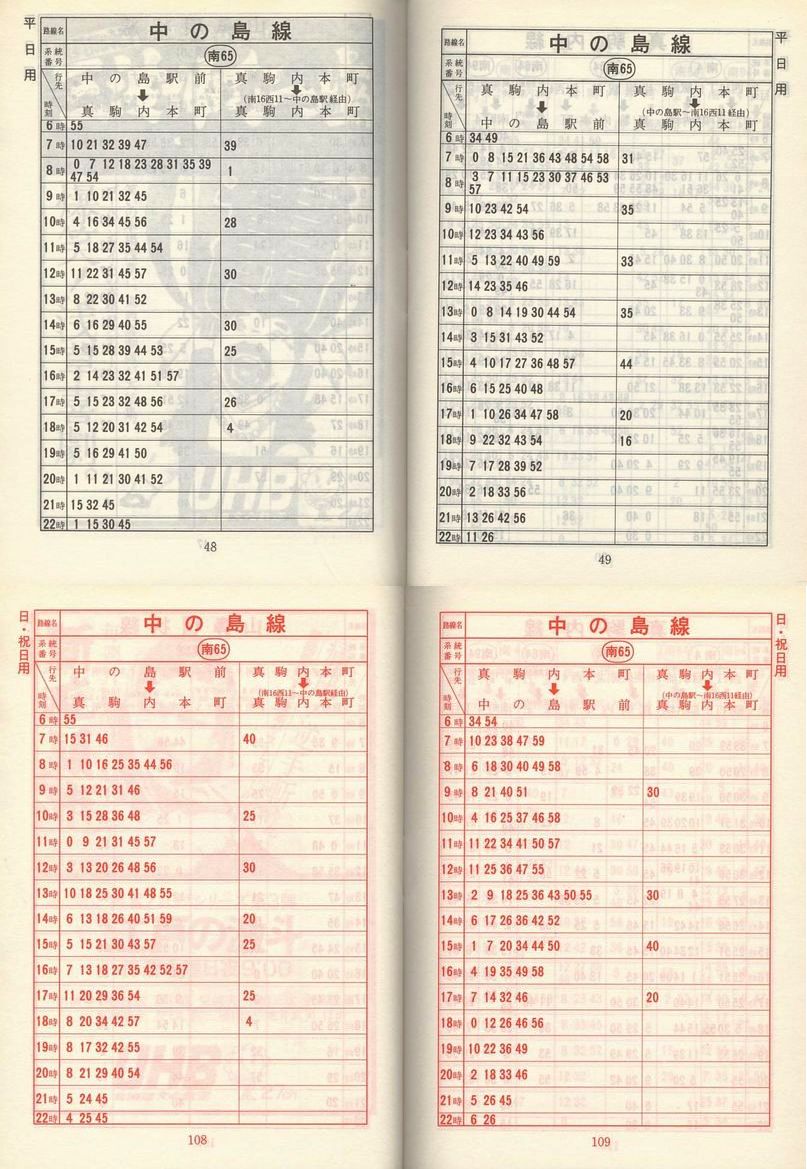 平日用
路線名 中の島線
系統番号 南65
行先 時刻 中の島駅前 ↓ 真駒内本町 真駒内本町 ↓ (南16西11～中の島駅経由) 真駒内本町
6時 55
7時 10 21 32 39 47 39
8時 0 7 12 18 23 28 31 35 39 47 54 1
9時 1 10 21 32 45
10時 4 16 34 45 56 28
11時 5 18 27 35 44 54
12時 11 22 31 45 57 30
13時 8 22 30 41 52
14時 6 16 29 40 55 30
15時 5 15 28 39 44 53 25
16時 2 14 23 32 41 51 57
17時 5 15 23 32 48 56 26
18時 5 12 20 31 42 54 4
19時 5 16 29 41 50
20時 1 11 21 30 41 52
21時 15 32 45
22時 1 15 30 45
48
平日用
路線名 中の島線
系統番号 南65
行先 時刻 真駒内本町 ↓ 中の島駅前 真駒内本町 ↓ (中の島駅～南16西11経由) 真駒内本町
6時 34 49
7時 0 8 15 21 36 43 48 54 58 31
8時 3 7 11 15 23 30 37 46 53 57
9時 10 23 42 54 35
10時 12 23 34 43 56
11時 5 13 22 40 49 59 33
12時 14 23 35 46
13時 0 8 14 19 30 44 54 35
14時 3 15 31 43 52
15時 4 10 17 27 36 48 57 44
16時 6 15 25 40 48
17時 1 10 26 34 47 58 20
18時 9 22 32 43 54 16
19時 7 17 28 39 52
20時 2 18 33 56
21時 13 26 42 56
22時 11 26
49
日・祝日用
路線名 中の島線
系統番号 南65
行先 時刻 中の島駅前 ↓ 真駒内本町 真駒内本町 ↓ (南16西11～中の島駅経由) 真駒内本町
6時 55
7時 15 31 46 40
8時 1 10 16 25 35 44 56
9時 5 12 21 31 46
10時 3 15 28 36 48 25
11時 0 9 21 31 45 57
12時 3 13 20 26 48 56 30
13時 10 18 25 30 41 48 55
14時 6 13 18 26 40 51 59 20
15時 5 15 21 30 43 57 25
16時 7 13 18 27 35 42 52 57
17時 11 20 29 36 54 25
18時 8 20 34 42 57 4
19時 8 17 32 42 55
20時 8 21 29 40 54
21時 5 24 45
22時 4 25 45
108
日・祝日用
路線名 中の島線
系統番号 南65
行先 時刻 真駒内本町 ↓ 中の島駅前 真駒内本町 ↓ (中の島駅～南16西11経由) 真駒内本町
6時 34 54
7時 10 23 38 47 59
8時 6 18 30 40 49 58
9時 8 21 40 51 30
10時 4 16 25 37 46 58
11時 11 22 34 41 50 57
12時 11 25 36 47 55
13時 2 9 18 25 36 43 50 55 30
14時 6 17 26 36 42 52
15時 1 7 20 34 44 50 40
16時 4 19 35 49 58
17時 7 14 32 46 20
18時 0 12 26 46 56
19時 10 22 36 49
20時 2 18 33 46
21時 5 26 45
22時 6 26
109